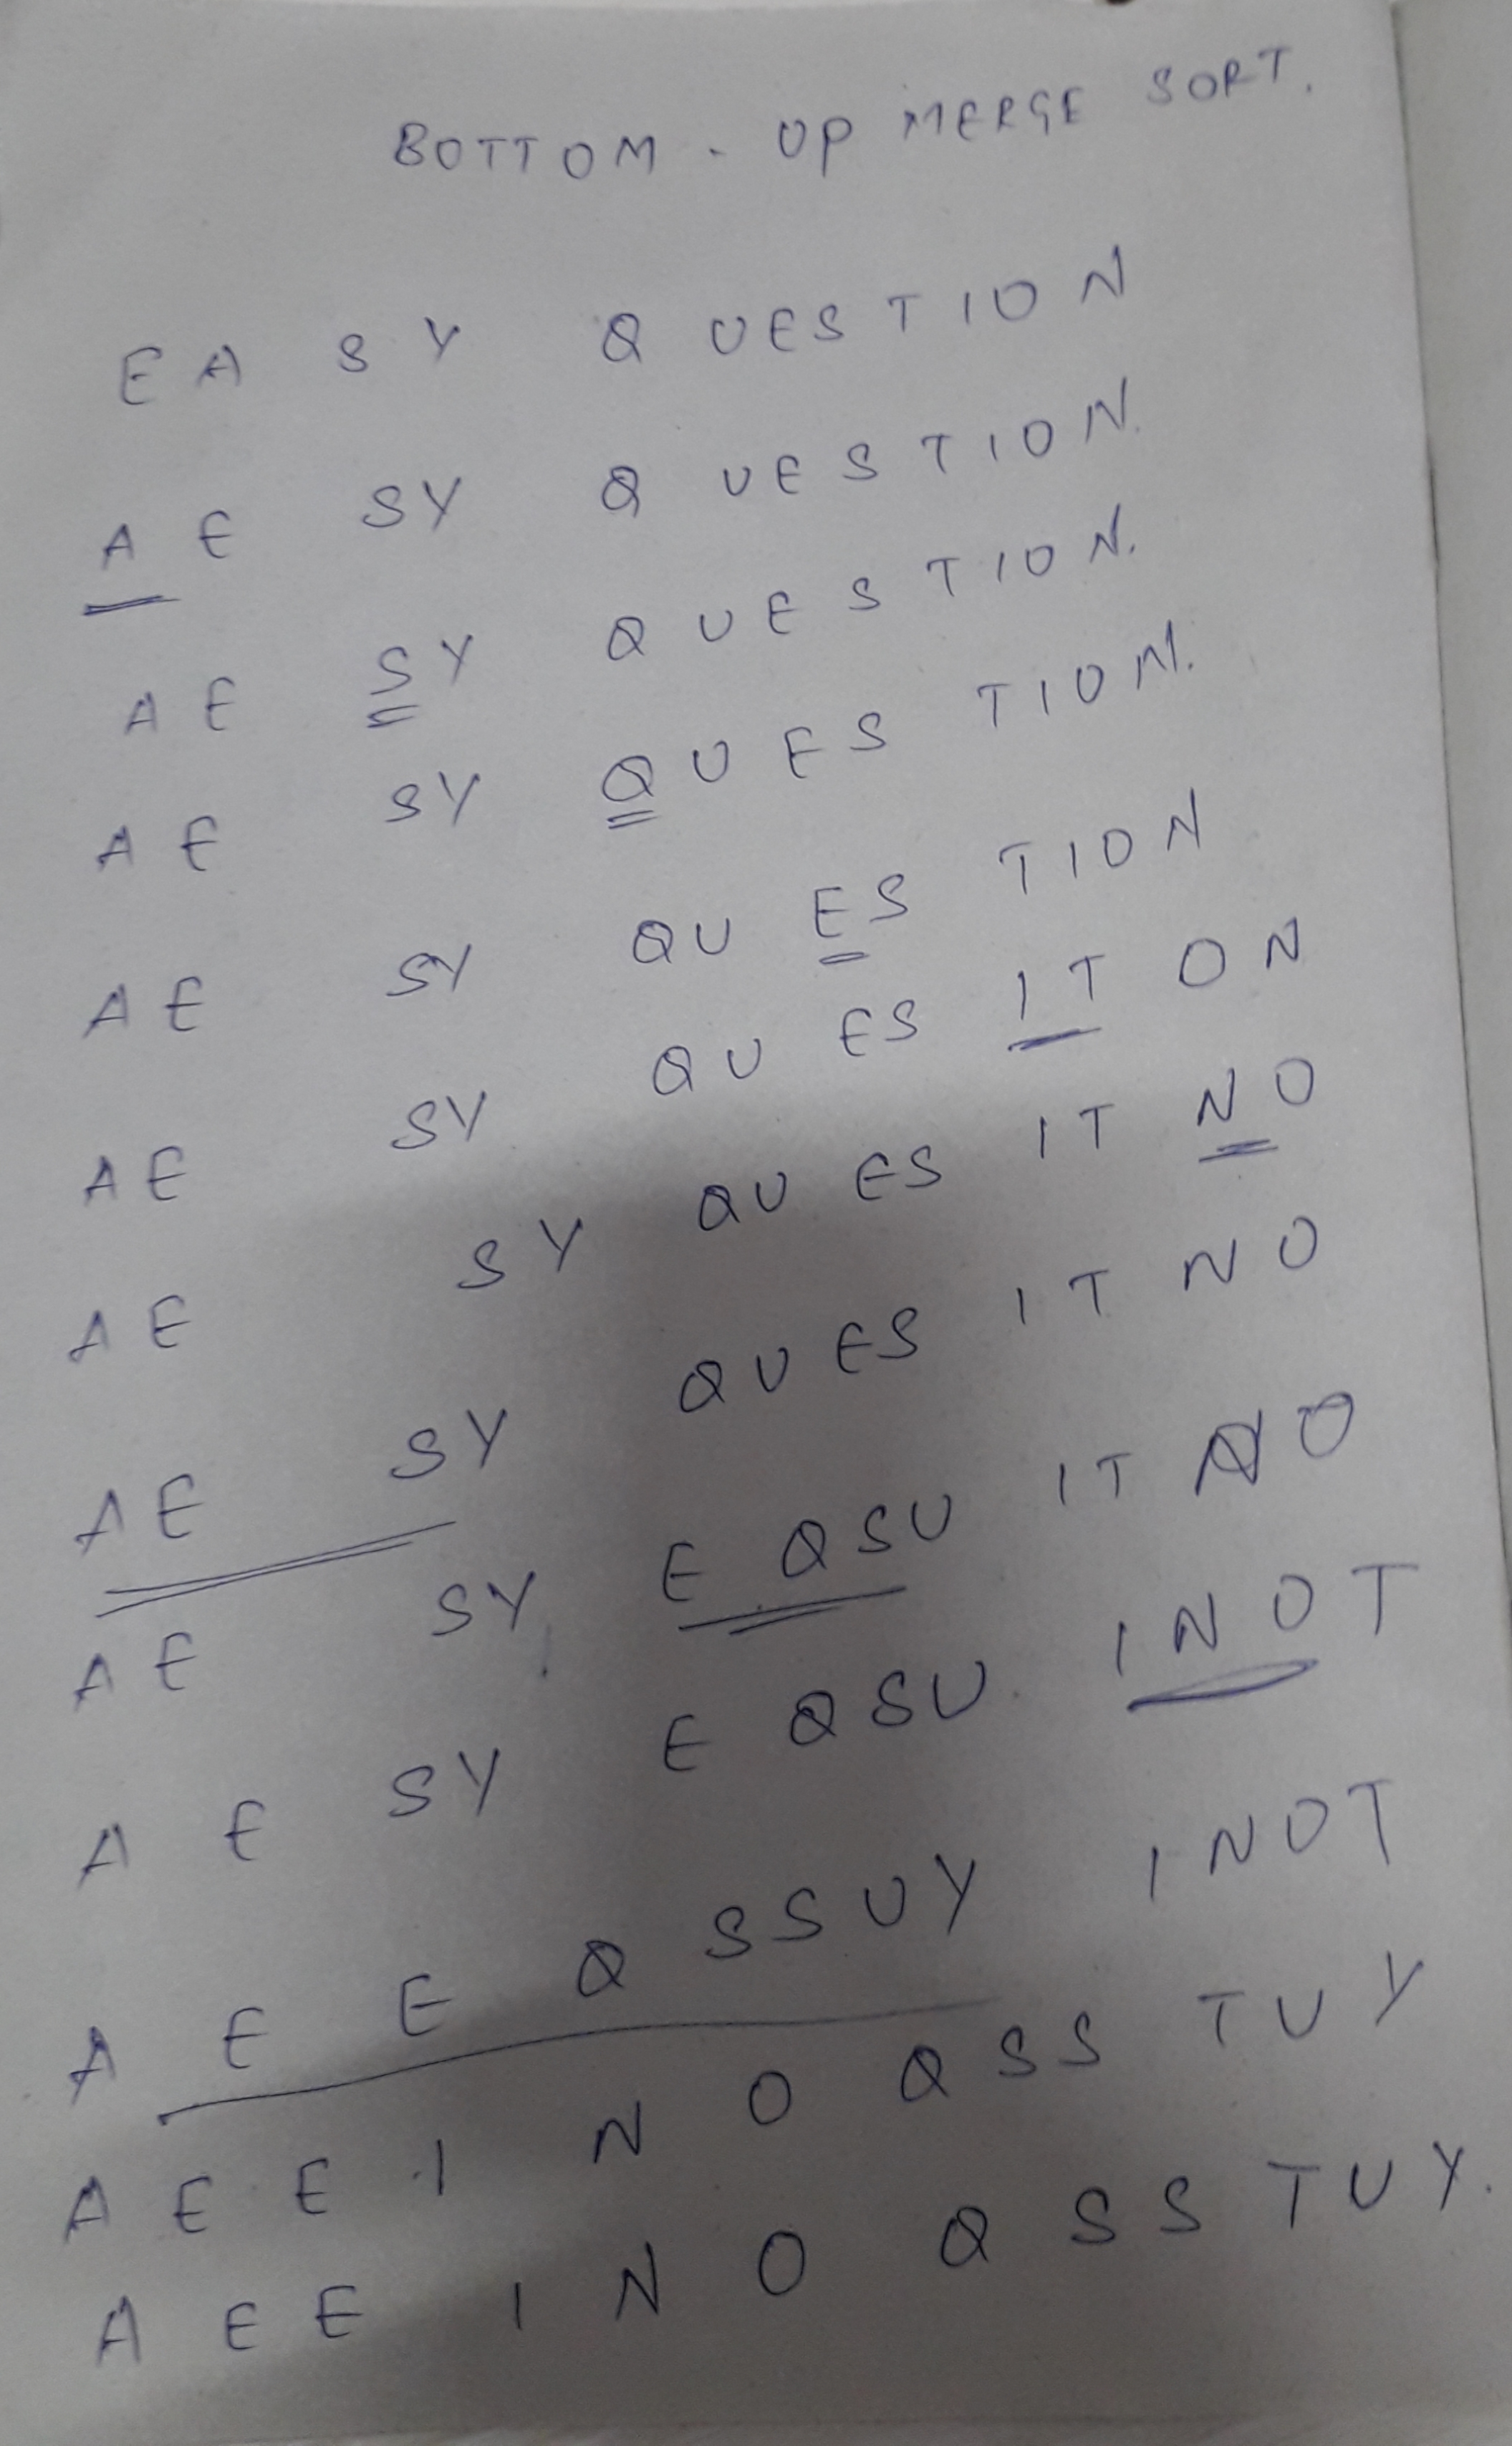 BOTTOM - UP MERGE SORT.
E A S Y Q U E S T I O N
A E S Y Q U E S T I O N.
A E S Y Q U E S T I O N.
A E S Y Q U E S T I O N.
A E S Y Q U E S T I O N
A E S Y Q U E S I T O N
A E S Y Q U E S I T N O
A E S Y Q U E S I T N O
A E S Y E Q S U I T N O
A E S Y E Q S U I N O T
A E E Q S S U Y I N O T
A E E I N O Q S S T U Y
A E E I N O Q S S T U Y.